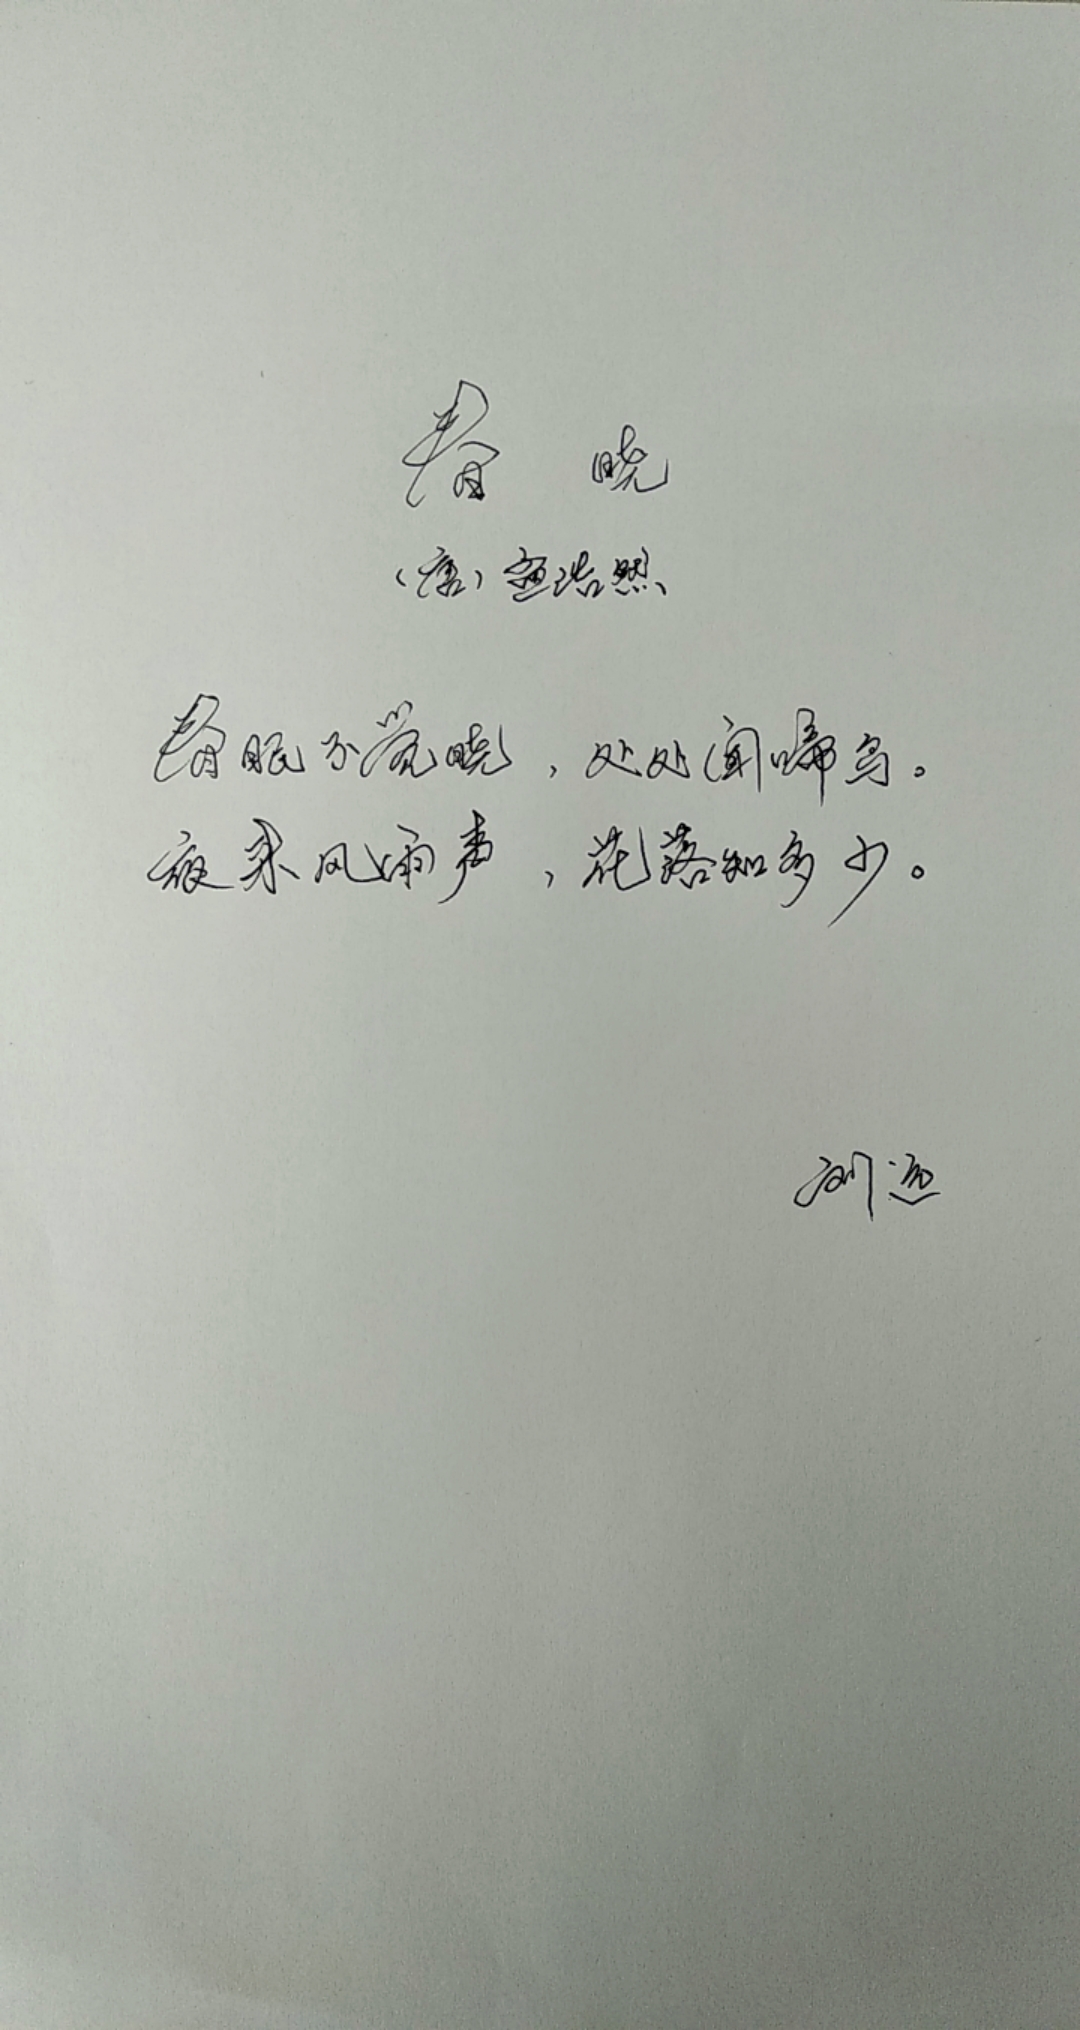 春 晓
(唐)孟浩然
春眠不觉晓,处处闻啼鸟。
夜来风雨声,花落知多少。
刘远